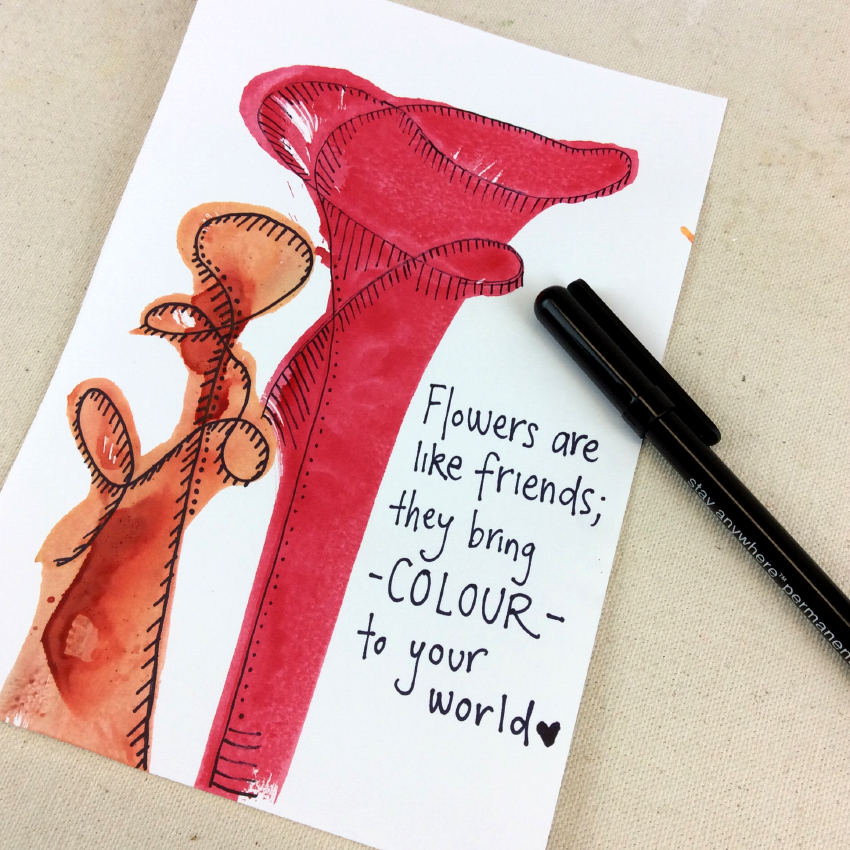 Flowers are
like friends;
they bring
-COLOUR-
to your
world♥
stay anywhere™ permanen